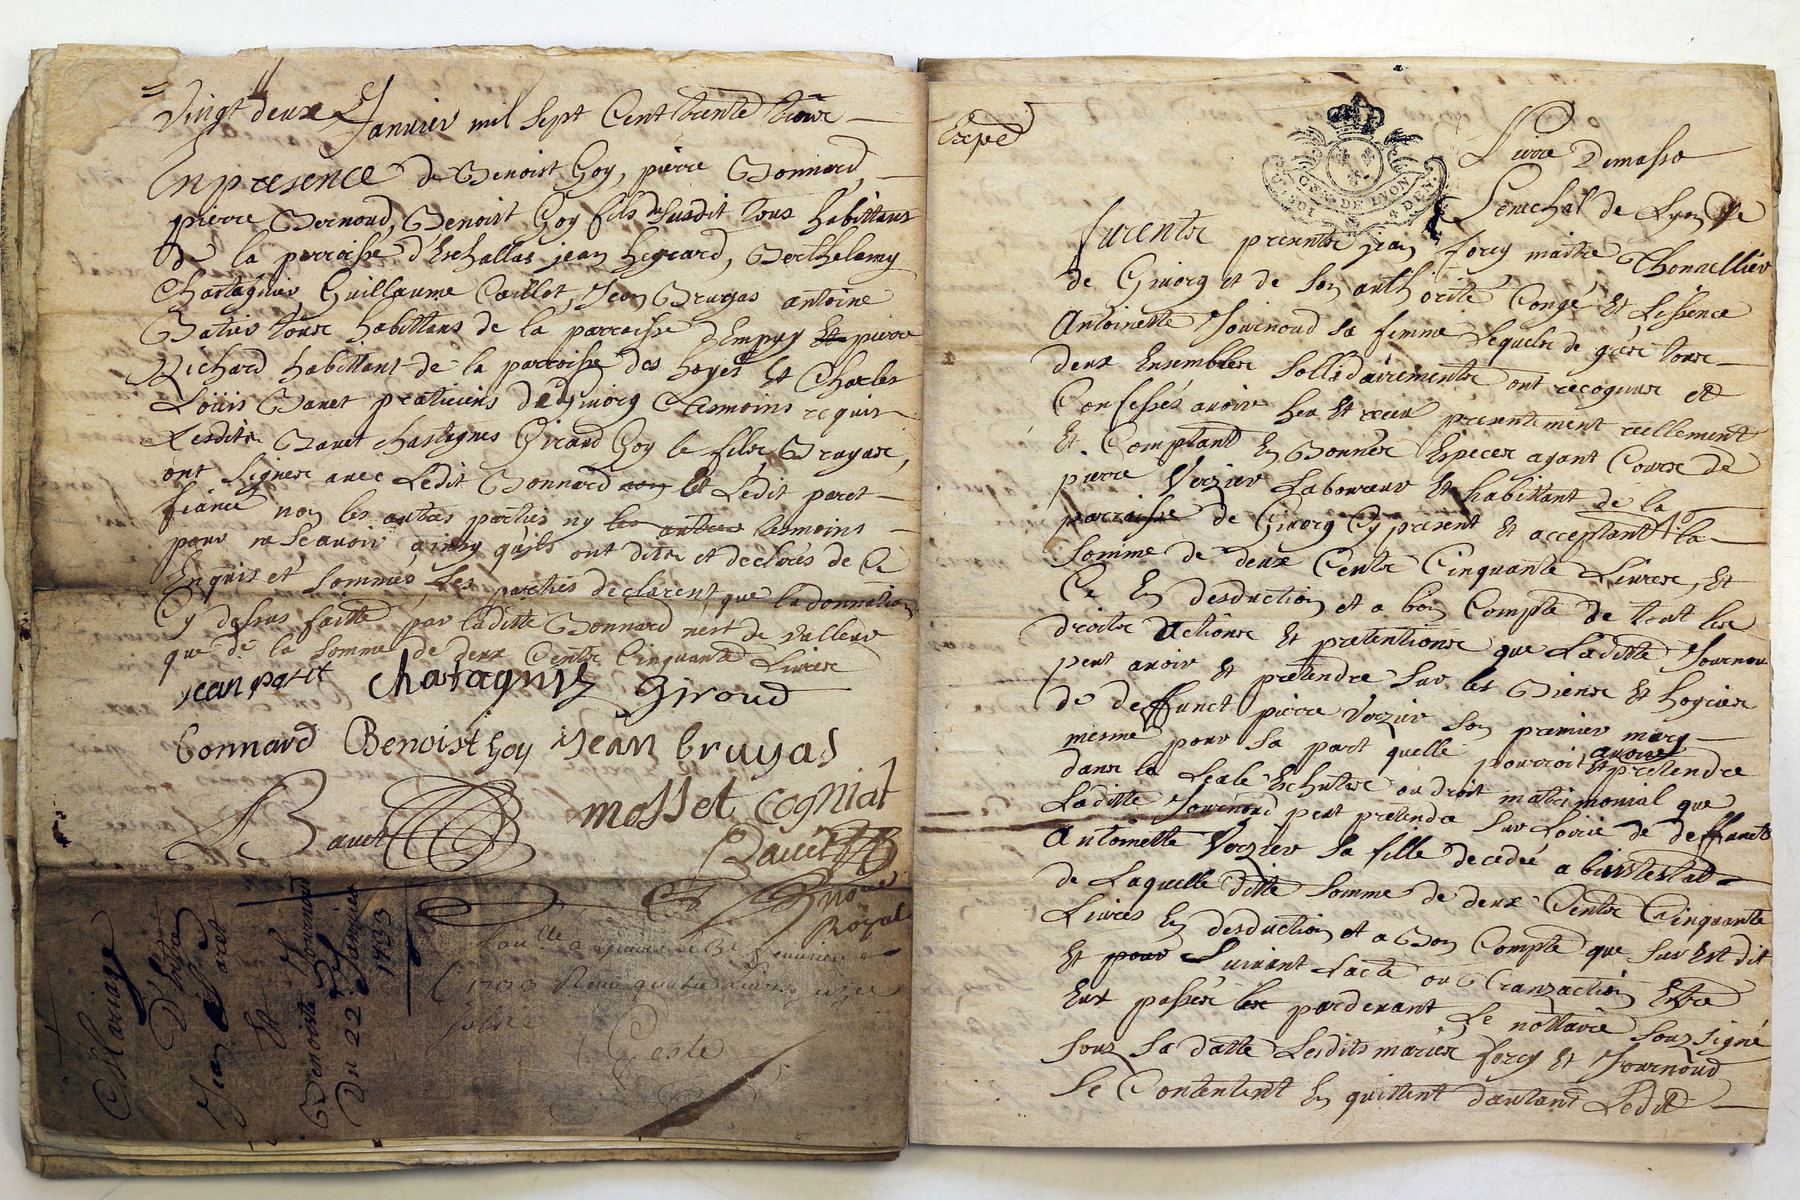 Vingt deux Janvier mil sept Cent trente trois
En presence de Benoist Goy, pierre Bonnard,
pierre Bernoud, Benoist Goy fils dusdit tous habittans
de la parroisse d'Eschallas jean Girard, Berthelemy
Chastagnier, Guillaume Caillot, Jean Bruyas antoine
tous habittans de la parroisse et pierre
Richard habittant de la parroisse des hayes Et Charles
Louis Bavet praticiens de Givorg tesmoins requis
Lesdits Bavet chastagnier Girard Goy le fils Bruyas,
ont signes avec Ledit Bonnard et Ledit poret
fiancé non les autres parties ny les autres tesmoins
pour ne sçavoir ainsy quils ont dits et declarés de Ce
Enquis et sommés, les parties declarent que la donnation
Cy dessus faitte par laditte Bonnard nest de valleur
que de la somme de deux Cents Cinquante Livres
jean poret chatagniz giroud
bonnard Benoist Goy jean bruyas
Bavet mosset cogniat
Royal
Mariage
D'entre
Jean Poret
Et
Benoiste Journoud
Du 22e Janvier
1733
Exped
GEN DE LYON
Senechal de Lyon
furents presents jean forey maitre Thonnellier
de Givorg et de son authorité Congé Et Lissence
Antoinette Journoud sa femme Lequels de grés tous
deux Ensembles sollidairements ont recognus et
Confessés avoir heu Et receu presentement reellement
Et Comptant En Bonnes Especes ayant Cours de
pierre Verzier Laboureur Et habittant de la
parroisse de Givorg Cy present Et acceptant la
Somme de deux Cents Cinquante Livres, Et
Ce En desduction et a bon Compte de tout les
droits Actions Et pretentions que Laditte Journou
peut avoir et pretendre sur les Biens Et hoyries
de deffunct pierre Verzier son premier mary
mesme pour sa part quelle pourroit avoir Et pretendre
dans la Leale Eschutes ou droit matrimonial que
Laditte Journoud peut pretendre sur Loirie de deffuncte
Antoinette Verzier sa fille decedée abintestat
de Laquelle ditte somme de deux Cents Cinquante
Livres En desduction et a Bon Compte que sus Est dit
Et pour suivant Lacte ou Tranzaction Entre
Eux passés pardevant Le nottaire soussigné
sous sa datte Lesdits mariés forey Et Journoud
se Contentent En quittent dautant Ledit